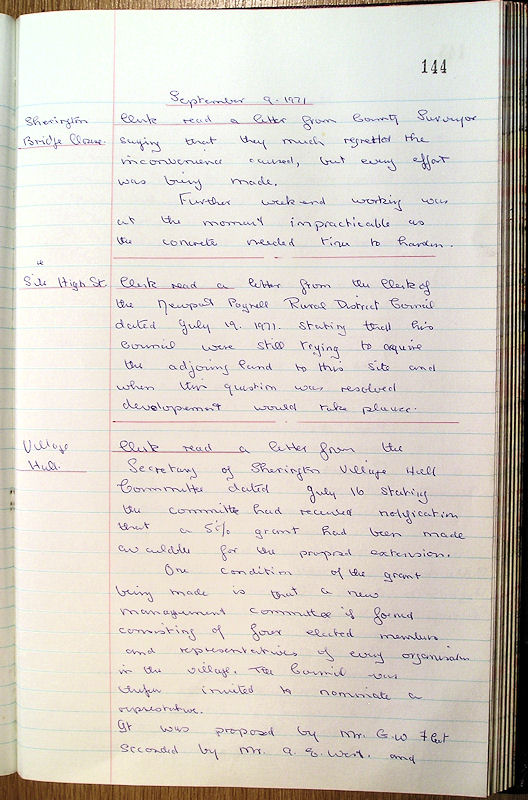 144
September 9. 1971
Sherington
Bridge Closure.
Clerk read a letter from County Surveyor
saying that they much regretted the
inconvenience caused, but every effort
was being made.
Further weekend working was
at the moment impracticable as
the concrete needed time to harden.
Site High St.
Clerk read a letter from the Clerk of
the Newport Pagnell Rural District Council
dated July 19. 1971. stating that his
Council were still trying to aquire
the adjoining land to this site and
when this question was resolved
developement would take place.
Village
Hall.
Clerk read a letter from the
Secretary of Sherington Village Hall
Committe dated July 16 stating
the committe had received notification
that a 55% grant had been made
available for the proposed extension.
One condition of the grant
being made is that a new
management committee is formed
consisting of four elected members
and representatives of every organisation
in the village. The Council was
therefore invited to nominate a
representative.
It was proposed by Mr. G.W
seconded by Mr. A. E. West. and